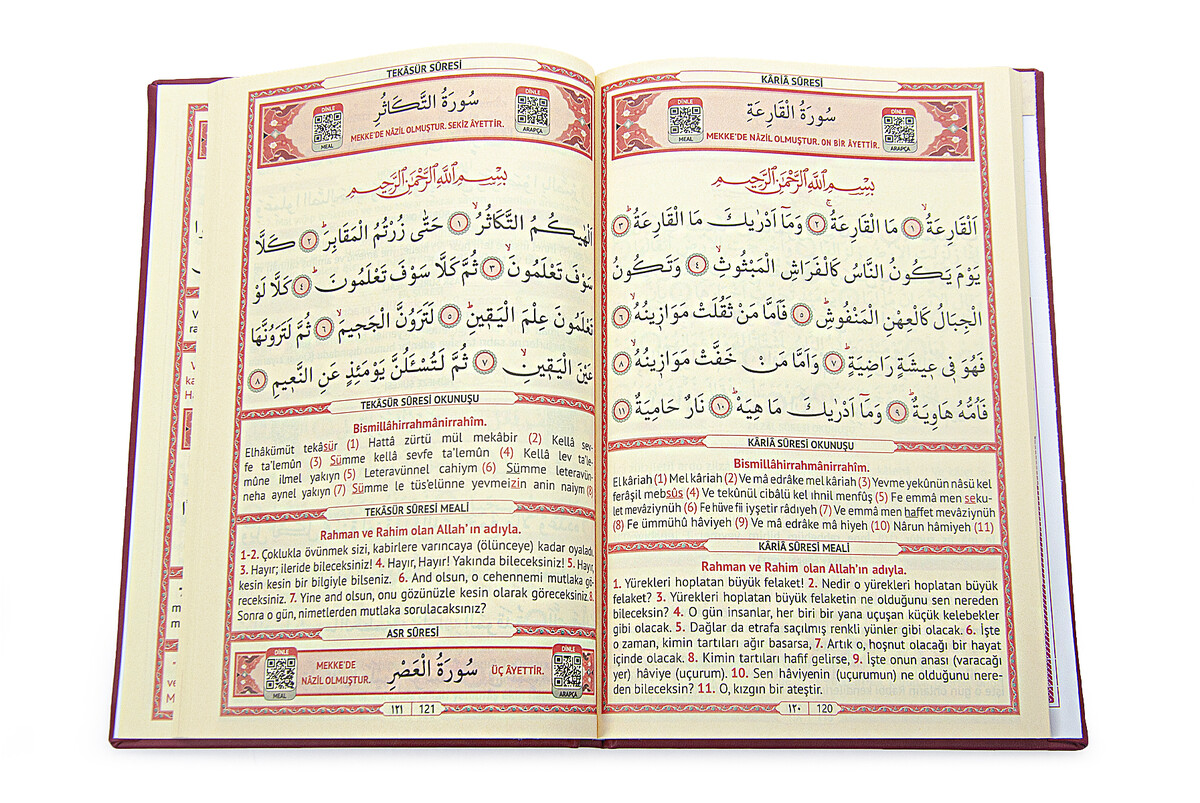 KÂRİÂ SÛRESİ
DİNLE
MEAL
سُورَةُ الْقَارِعَةِ
DİNLE
ARAPÇA
MEKKE'DE NÂZİL OLMUŞTUR. ON BİR ÂYETTİR.
بِسْمِ اللّٰهِ الرَّحْمٰنِ الرَّحِيمِ
اَلْقَارِعَةُۙ ١ مَا الْقَارِعَةُۚ ٢ وَمَٓا اَدْرٰيكَ مَا الْقَارِعَةُۜ ٣
يَوْمَ يَكُونُ النَّاسُ كَالْفَرَاشِ الْمَبْثُوثِۙ ٤ وَتَكُونُ
الْجِبَالُ كَالْعِهْنِ الْمَنْفُوشِۜ ٥ فَاَمَّا مَنْ ثَقُلَتْ مَوَازٖينُهُۙ ٦
فَهُوَ فٖي عٖيشَةٍ رَاضِيَةٍۜ ٧ وَاَمَّا مَنْ خَفَّتْ مَوَازٖينُهُۙ ٨
فَاُمُّهُ هَاوِيَةٌۜ ٩ وَمَٓا اَدْرٰيكَ مَا هِيَهْۜ ١٠ نَارٌ حَامِيَةٌ ١١
KÂRİÂ SÛRESİ OKUNUŞU
Bismillâhirrahmânirrahîm.
El kâriah (1) Mel kâriah (2) Ve mâ edrâke mel kâriah (3) Yevme yekûnün nâsü kel
ferâşil mebsûs (4) Ve tekûnül cibâlü kel ıhnil menfûş (5) Fe emmâ men seku-
let mevâziynüh (6) Fe hüve fii ıyşetir râdıyeh (7) Ve emmâ men haffet mevâziynüh
(8) Fe ümmühû hâviyeh (9) Ve mâ edrâke mâ hiyeh (10) Nârun hâmiyeh (11)
KÂRİÂ SÛRESİ MEALİ
Rahman ve Rahim olan Allah'ın adıyla.
1. Yürekleri hoplatan büyük felaket! 2. Nedir o yürekleri hoplatan büyük
felaket? 3. Yürekleri hoplatan büyük felaketin ne olduğunu sen nereden
bileceksin? 4. O gün insanlar, her biri bir yana uçuşan küçük kelebekler
gibi olacak. 5. Dağlar da etrafa saçılmış renkli yünler gibi olacak. 6. İşte
o zaman, kimin tartıları ağır basarsa, 7. Artık o, hoşnut olacağı bir hayat
içinde olacak. 8. Kimin tartıları hafif gelirse, 9. İşte onun anası (varacağı
yer) hâviye (uçurum). 10. Sen hâviyenin (uçurumun) ne olduğunu nere-
den bileceksin? 11. O, kızgın bir ateştir.
١٢٠ 120
TEKÂSÜR SÛRESİ
DİNLE
MEAL
سُورَةُ التَّكَاثُرِ
DİNLE
ARAPÇA
MEKKE'DE NÂZİL OLMUŞTUR. SEKİZ ÂYETTİR.
بِسْمِ اللّٰهِ الرَّحْمٰنِ الرَّحِيمِ
اَلْهٰيكُمُ التَّكَاثُرُۙ ١ حَتّٰى زُرْتُمُ الْمَقَابِرَۜ ٢ كَلَّا
سَوْفَ تَعْلَمُونَۙ ٣ ثُمَّ كَلَّا سَوْفَ تَعْلَمُونَۜ ٤ كَلَّا لَوْ
تَعْلَمُونَ عِلْمَ الْيَقٖينِۜ ٥ لَتَرَوُنَّ الْجَحٖيمَۙ ٦ ثُمَّ لَتَرَوُنَّهَا
عَيْنَ الْيَقٖينِۙ ٧ ثُمَّ لَتُسْـَٔلُنَّ يَوْمَئِذٍ عَنِ النَّعٖيمِ ٨
TEKÂSÜR SÛRESİ OKUNUŞU
Bismillâhirrahmânirrahîm.
Elhâkümüt tekâsür (1) Hattâ zürtü mül mekâbir (2) Kellâ sev-
fe ta'lemûn (3) Sümme kellâ sevfe ta'lemûn (4) Kellâ lev ta'le-
mûne ilmel yakıyn (5) Leteravünnel cahiym (6) Sümme leteravün-
neha aynel yakıyn (7) Sümme le tüs'elünne yevmeizin anin naiym (8)
TEKÂSÜR SÛRESİ MEALİ
Rahman ve Rahim olan Allah'ın adıyla.
1-2. Çoklukla övünmek sizi, kabirlere varıncaya (ölünceye) kadar oyaladı.
3. Hayır; ileride bileceksiniz! 4. Hayır, Hayır! Yakında bileceksiniz! 5. Hayır,
kesin kesin bir bilgiyle bilseniz. 6. And olsun, o cehennemi mutlaka gö-
receksiniz. 7. Yine and olsun, onu gözünüzle kesin olarak göreceksiniz. 8.
Sonra o gün, nimetlerden mutlaka sorulacaksınız?
ASR SÛRESİ
DİNLE
MEAL
MEKKE'DE
NÂZİL OLMUŞTUR.
سُورَةُ الْعَصْرِ
ÜÇ ÂYETTİR.
DİNLE
ARAPÇA
١٢١ 121